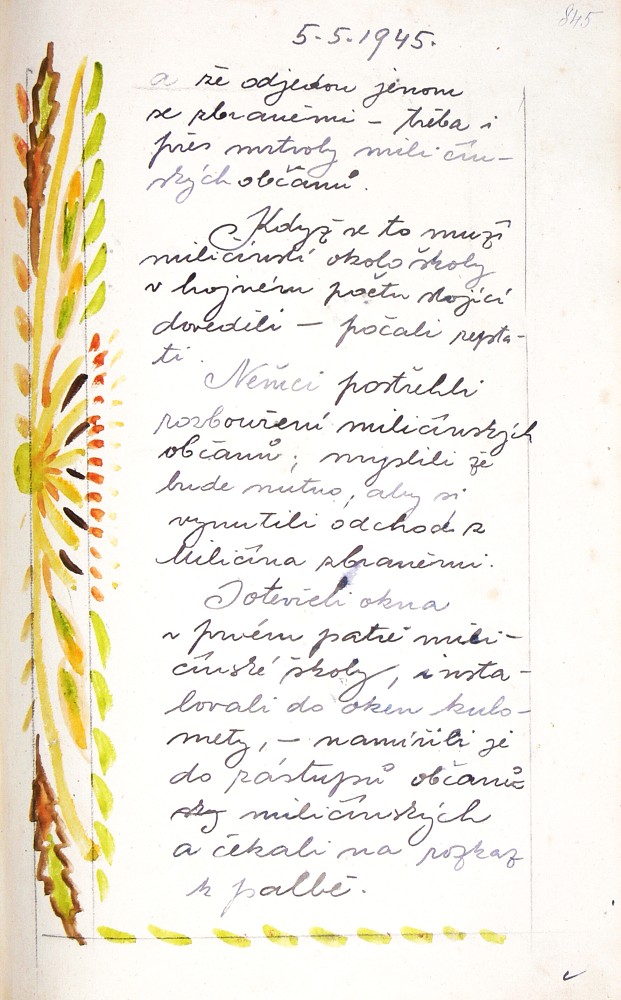 845
5-5-1945.
a že odjedou jenom
se zbraněmi – třeba i
přes mrtvoly miličín-
ských občanů.
Když se to muži
miličínští okolo školy
v hojném počtu stojící
dověděli – počali repta-
ti.
Němci postřehli
rozbouření miličínských
občanů; myslili že
bude nutno, aby si
vynutili odchod z
Miličína zbraněmi.
I otevřeli okna
v prvém patře mili-
čínské školy, insta-
lovali do oken kulo-
mety, – namířili je
do zástupů občanů
miličínských
a čekali na rozkaz
k palbě.